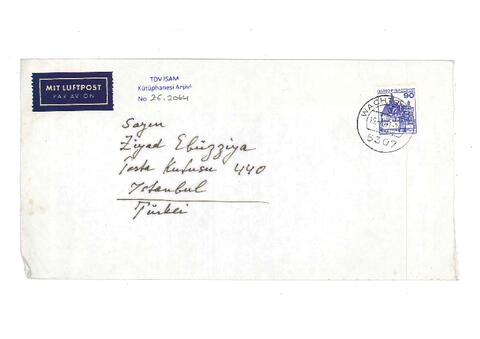 MIT LUFTPOST
PAR AVION
TDV İSAM
Kütüphanesi Arşivi
No 26.2064
DEUTSCHE BUNDESPOST
90
5307
Sayın
Ziyad Ebüzziya
Posta Kutusu 440
Istanbul
Türkei